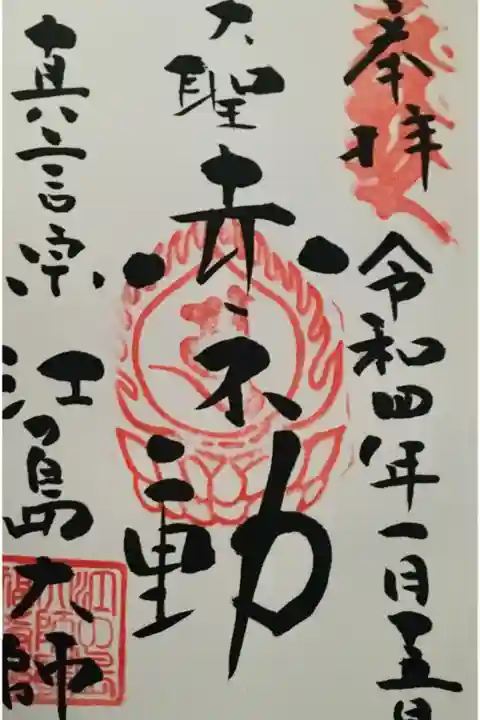 奉拝
令和四年一月十五日
大聖
赤不動
真言宗 江の島大師